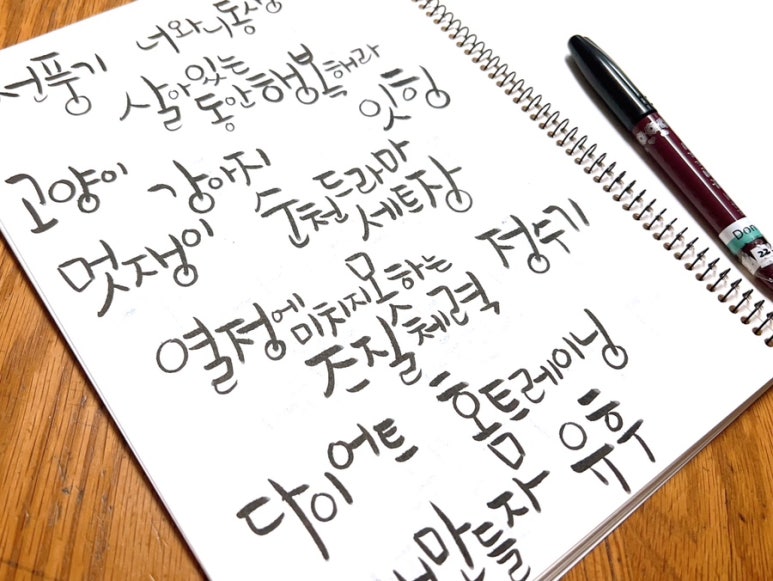 선풍기 너와나 동생
살아있는 동안 행복해라
잇힝
고양이 강아지
멋쟁이 순천드라마세트장
열정에 미치지 못하는 즈질체력
정수기
다이어트 홈트레이닝
만들자 유후
Don
22